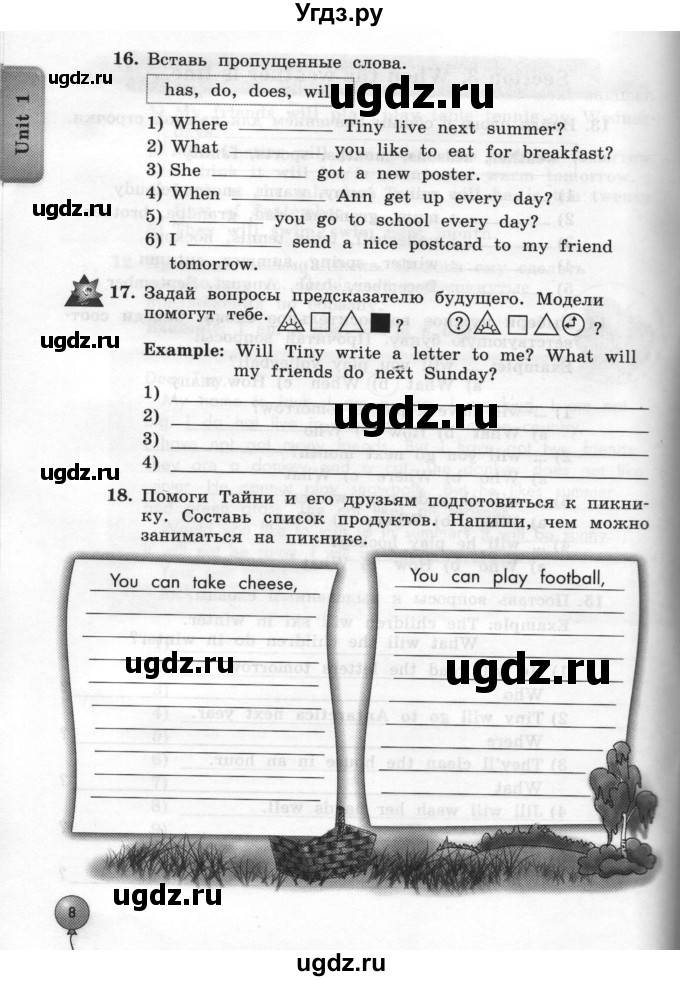 Угдз.ру
Unit 1
16. Вставь пропущенные слова.
has, do, does, wil
ugdz.ru
ugdz.ru
1) Where Tiny live next summer?
2) What you like to eat for breakfast?
3) She got a new poster.
4) When Ann get up every day?
ugdz.ru
5) you go to school every day?
6) I send a nice postcard to my friend
tomorrow.
17. Задай вопросы предсказателю будущего. Модели
помогут тебе. ? ? ?
ugdz.ru
Example: Will Tiny write a letter to me? What will
my friends do next Sunday?
1)
2)
ugdz.ru
3)
4)
ugdz.ru
18. Помоги Тайни и его друзьям подготовиться к пикни-
ку. Составь список продуктов. Напиши, чем можно
заниматься на пикнике.
You can take cheese,
You can play football,
ugdz.ru
ugdz.ru
ugdz.ru
8
ugdz.ru